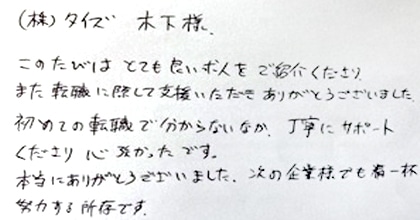 (株)タイズ 木下様、
このたびは とても良い求人を ご紹介くださり、
また 転職に際して支援いただき ありがとうございました
初めての転職で分からないなか、丁寧にサポート
くださり 心強かったです。
本当にありがとうございました。次の企業様でも精一杯
努力する所存です。